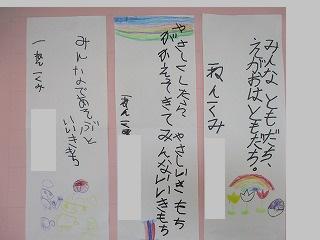 みんな ともだち、
えがおは ともだち。
一ねん一くみ
やさしくしたら やさしいき もち
みんないいきもち
一ねん一くみ
みんなであそぶと
いいきもち
一ねん一くみ